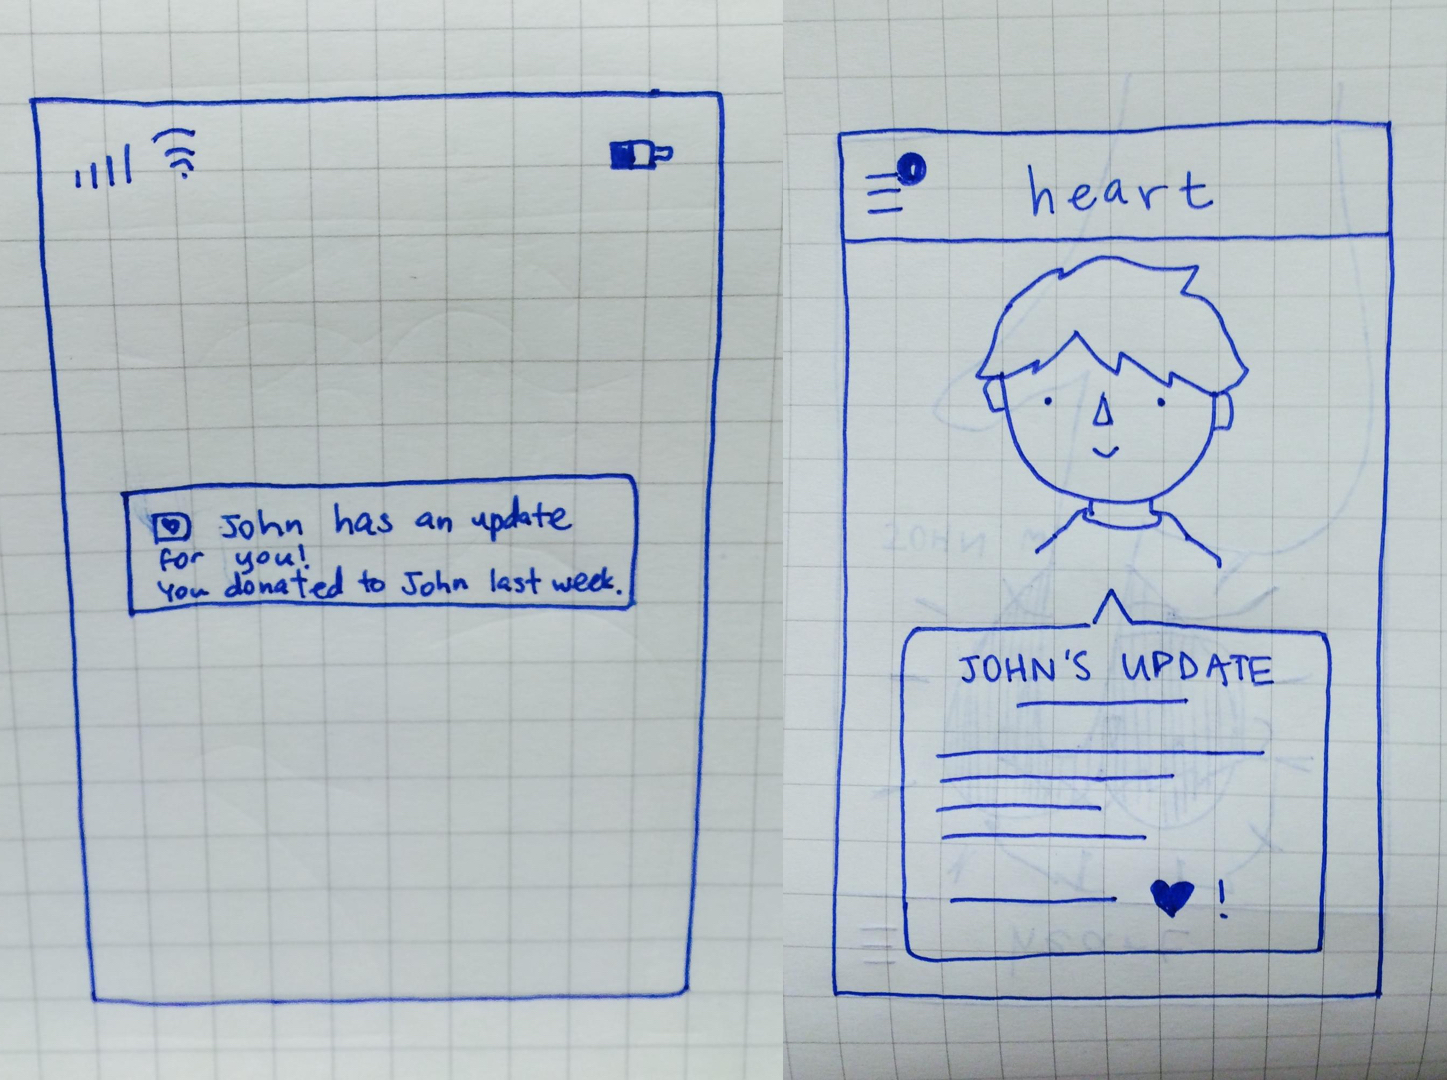 John has an update
for you!
You donated to John last week.
heart
JOHN'S UPDATE
!